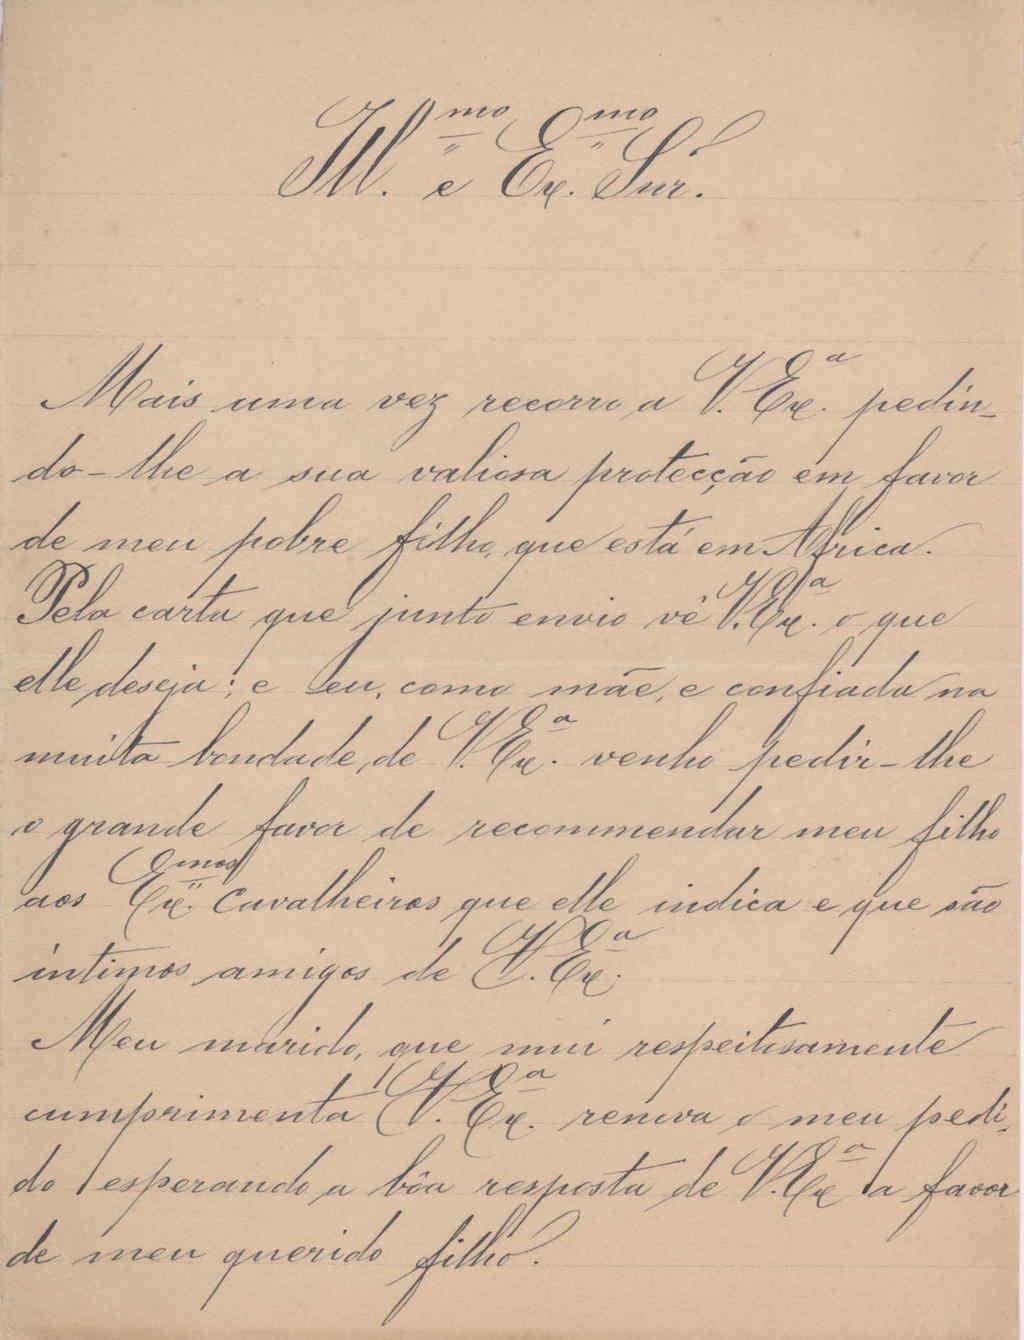 Ill.mo e Ex.mo Snr.
Mais uma vez recorro a V. Ex.a pedin-
do-lhe a sua valiosa protecção em favor
de meu pobre filho, que está em Africa.
Pela carta que junto envio vê V. Ex.a o que
elle deseja; e eu, como mãe, e confiada na
muita bondade, de V. Ex.a venho pedir-lhe
o grande favor de recommendar meu filho
aos Ex.mos Cavalheiros que elle indica e que são
intimos amigos de V. Ex.a
Meu marido, que mui respeitosamente
cumprimenta V. Ex.a renova o meu pedi-
do esperando a bôa resposta de V. Ex.a a favor
de meu querido filho.